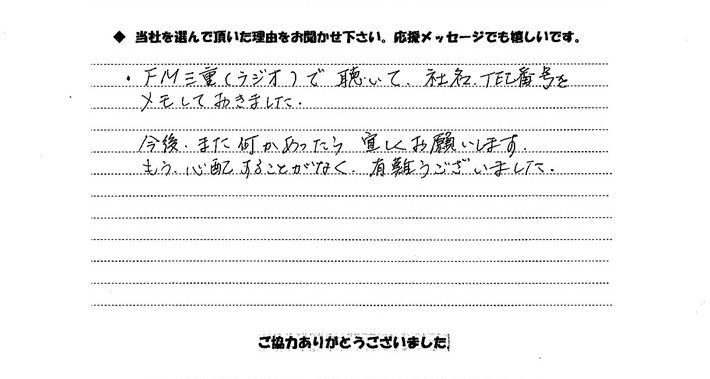 ◆ 当社を選んで頂いた理由をお聞かせ下さい。応援メッセージでも嬉しいです。
・FM三重(ラジオ)で聴いて、社名、TEL番号を
メモしておきました.
今後、また何かあったら宜しくお願いします.
もう、心配することがなく、有難うございました.
ご協力ありがとうございました